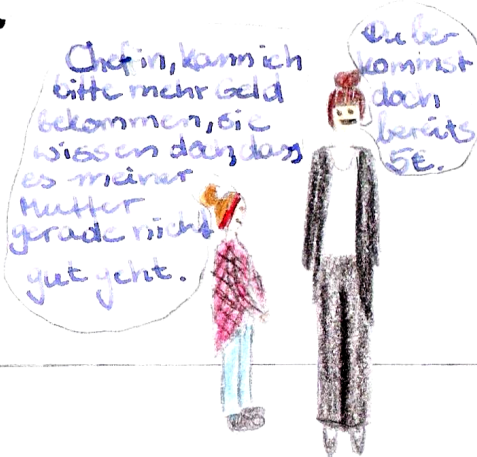 Chefin, kann ich
bitte mehr Geld
bekommen, sie
wissen doch, dass
es meiner
Mutter
gerade nicht
gut geht.
Du be-
kommst
doch
bereits
5€.